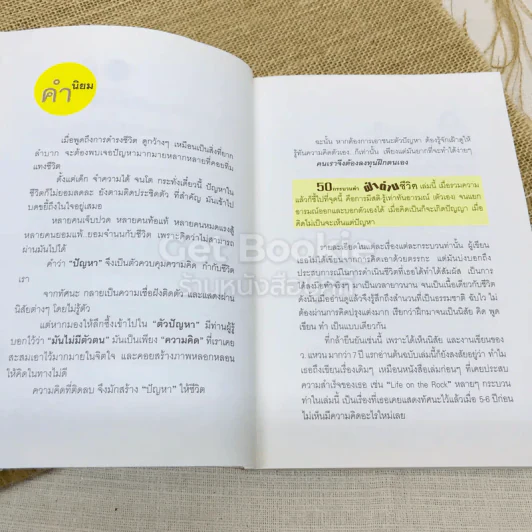 คำนิยม
เมื่อพูดถึงการดำรงชีวิต ดูกว้างๆ เหมือนเป็นสิ่งที่ยาก
ลำบาก จะต้องพบเจอปัญหามากมายหลากหลายที่คอยทิ่ม
แทงชีวิต
ตั้งแต่เด็ก จำความได้ จนโต กระทั่งเดี๋ยวนี้ ปัญหาใน
ชีวิตก็ไม่ยอมลดละ ยังตามติดประชิดตัว ที่สำคัญ มันเข้าไป
บดขยี้ถึงใจอยู่เสมอ
หลายคนเจ็บปวด หลายคนท้อแท้ หลายคนหมดแรงสู้
หลายคนยอมแพ้ ยอมจำนนกับชีวิต เพราะคิดว่าไม่สามารถ
ผ่านมันไปได้
คำว่า "ปัญหา" จึงเป็นตัวควบคุมความคิด กำกับชีวิต
เรา
จากทัศนะ กลายเป็นความเชื่อฝังติดตัว และแสดงผ่าน
นิสัยต่างๆ โดยไม่รู้ตัว
แต่หากมองให้ลึกซึ้งเข้าไปใน "ตัวปัญหา" มีท่านผู้รู้
บอกไว้ว่า "มันไม่มีตัวตน" มันเป็นเพียง "ความคิด" ที่เราเคย
สะสมเอาไว้มากมายในจิตใจ และคอยสร้างภาพหลอกหลอน
ให้คิดในทางไม่ดี
ความคิดที่ติดลบ จึงมักสร้าง "ปัญหา" ให้ชีวิต
ฉะนั้น หากต้องการเอาชนะตัวปัญหา ต้องรู้จักเฝ้าดูให้
รู้ทันความคิดตัวเอง ก็เท่านั้น เพียงแต่มันยากที่จะทำได้ง่ายๆ
คนเราจึงต้องลงทุนฝึกตนเอง
50 กระบวนท่า ฝ่าด่านชีวิต เล่มนี้ เมื่อรวมความ
แล้วก็ชี้ไปที่จุดนี้ คือการมีสติ-รู้เท่าทันอารมณ์ (ตัวเอง) จนแยก
อารมณ์ออกและบอกตัวเองได้ เมื่อคิดเป็นก็จะเกิดปัญญา เมื่อ
คิดไม่เป็นจะเห็นแต่ปัญหา
รายละเอียดในแต่ละเรื่องแต่ละกระบวนท่านั้น ผู้เขียน
ประสบการณ์ในการดำเนินชีวิตที่เธอได้ทำได้สัมผัส เป็น
มาเป็นเวลายาวนาน จนเป็นเนื้อเดียวกับชีวิต
ดังนั้นเมื่ออ่านแล้วจึงรู้สึกถึงสำนวนที่เป็นธรรมชาติ จับใจ ไม่
ต้องผ่านการคิดปรุงแต่งมาก เรียกว่าฝึกมาจนเป็นนิสัย คิด พูด
เขียน ทำ เป็นแบบเดียวกัน
ที่กล้ายืนยันเช่นนี้ เพราะได้เห็นนิสัย และงานเขียนของ
ว.แหวน มากกว่า 7 ปี แรกอ่านต้นฉบับเล่มนี้ก็ยังสงสัยอยู่ว่า ทำไม
เธอถึงเขียนเรื่องเดิมๆ เหมือนหนังสือเล่มก่อนๆ ที่เคยประสบ
ความสำเร็จของเธอ เช่น "Life on the Rock" หลายๆ กระบวน
ท่าในเล่มนี้ เป็นเรื่องที่เธอเคยแสดงทัศนะไว้แล้วเมื่อ 5-6 ปีก่อน
ไม่เห็นมีความคิดอะไรใหม่เลย
Get Bookie